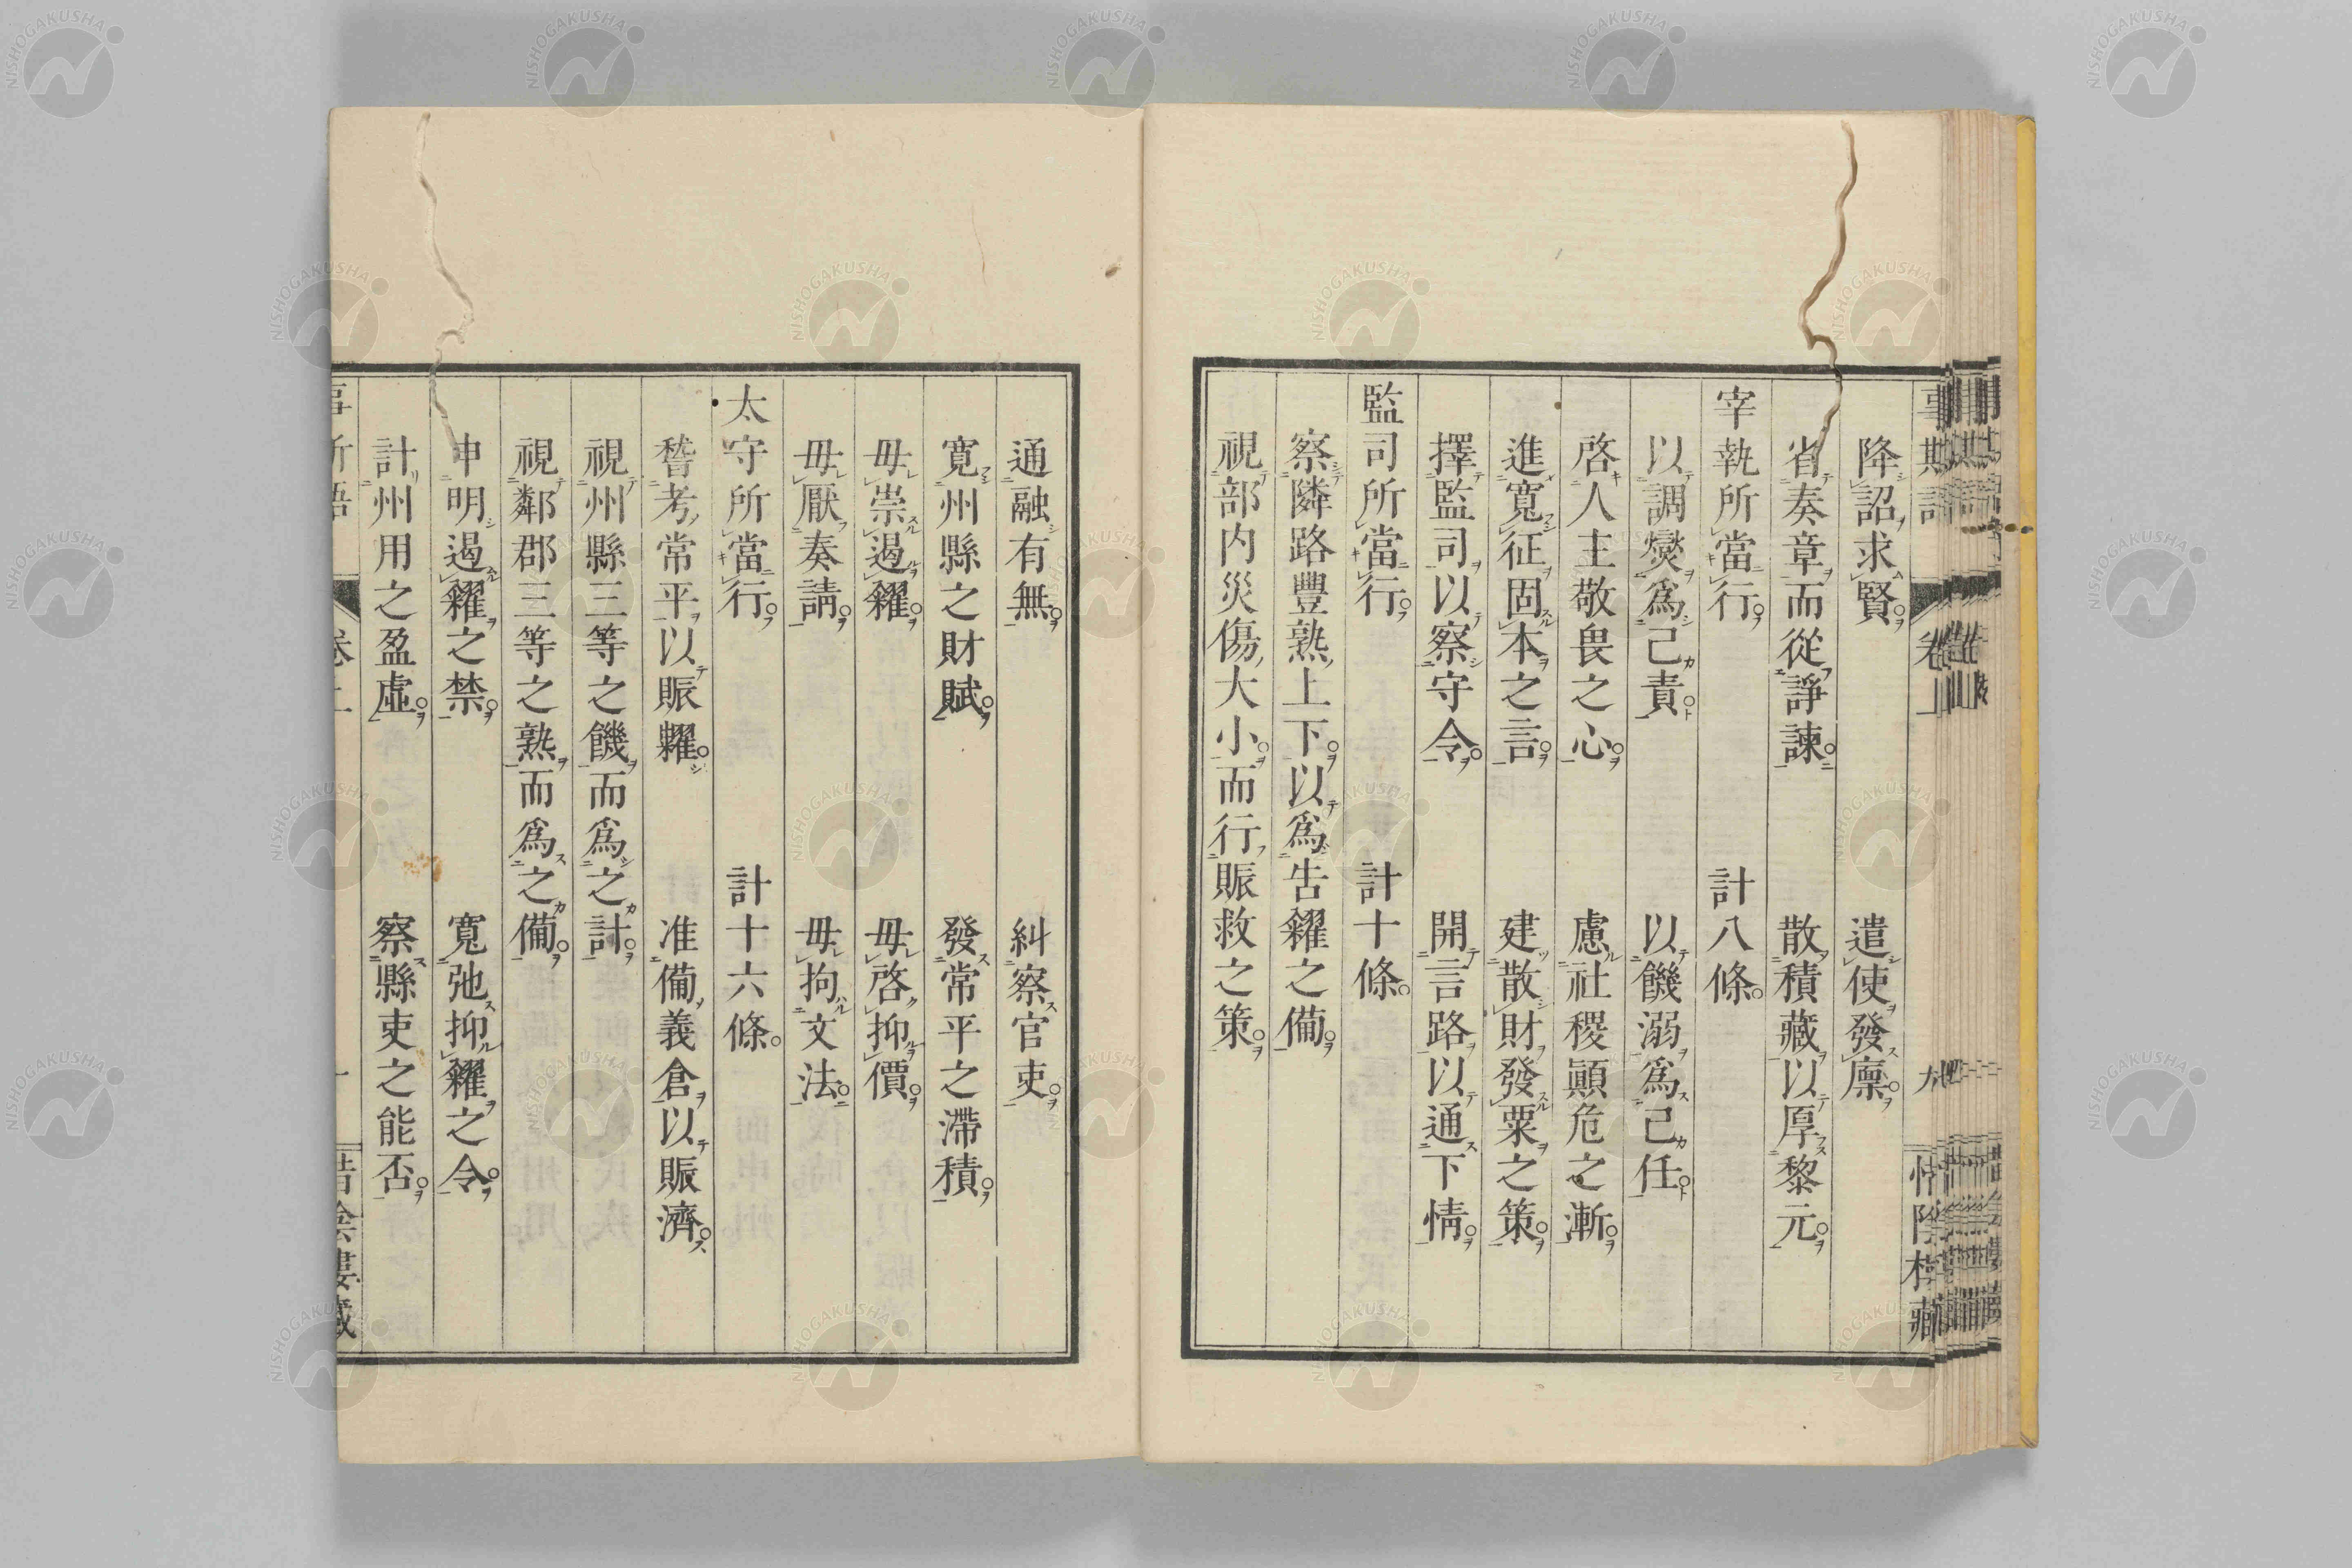 降詔求賢。 遣使發廩。
省奏章而從諍諫。 散積藏以厚黎元。
宰執所當行。 計八條。
以調燮爲己責。 以饑溺爲己任。
啓人主敬畏之心。 慮社稷顚危之漸。
進寬征固本之言。 建散財發粟之策。
擇監司以察守令。 開言路以通下情。
監司所當行。 計十條。
察隣路豐熟上下。以爲告糴之備。
視部内災傷大小。而行賑救之策。
通融有無。 糾察官吏。
寛州縣之財賦。 發常平之滯積。
毋崇遏糴。 毋啓抑價。
毋厭奏請。 毋拘文法。
太守所當行。 計十六條。
稽考常平以賑糶。 准備義倉以賑濟。
視州縣三等之饑而爲之計。
視鄰郡三等之熟而爲之備。
申明遏糴之禁。 寬弛抑糴之令。
計州用之盈虛。 察縣吏之能否。
NISHOGAKUSHA